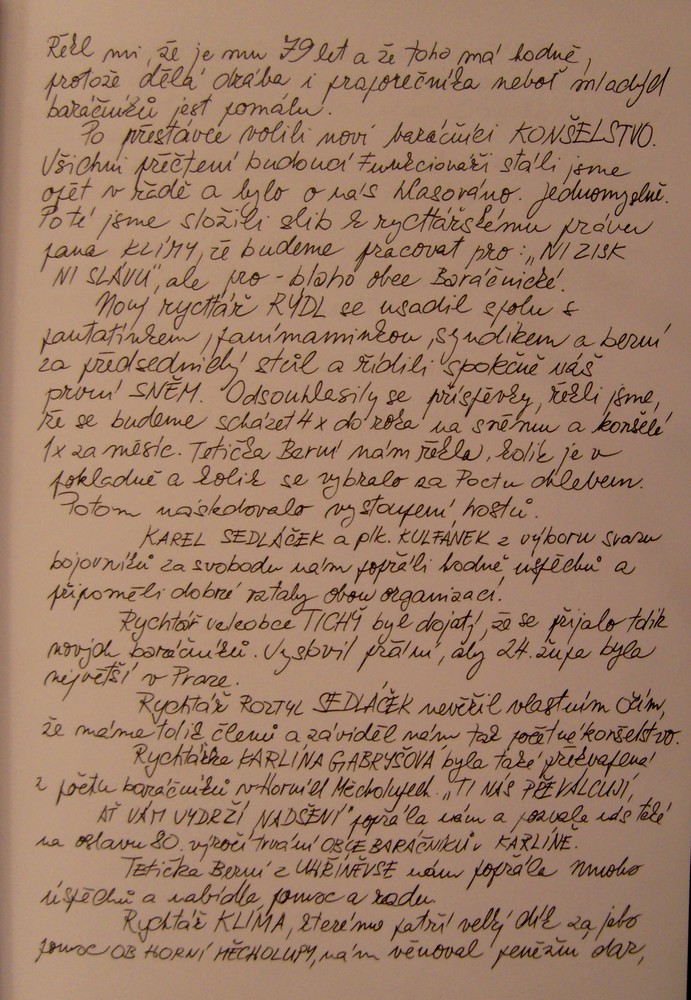 Řekl mi, že je mu 79 let a že toho má hodně,
protože dělá drába i praporečníka neboť mladých
baráčníků jest pomálu.
Po přestávce volili noví baráčníci KONŠELSTVO.
Všichni přečtení budoucí funkcionáři stáli jsme
opět v řadě a bylo o nás hlasováno. Jednomyslně.
Poté jsme složili slib k rychtářskému právu
pana KLIMY, že budeme pracovat pro: „NI ZISK
NI SLÁVU", ale pro - blaho obce Baráčnické.
Nový rychtář RYDL se usadil spolu s
pantatínkem, panímaminkou, syndikem a berní
za předsednický stůl a řídili společně náš
první SNĚM. Odsouhlasily se příspěvky, řekli jsme,
že se budeme scházet 4x do roka na sněmu a konšelé
1x za měsíc. Tetička Berní nám řekla, kolik je v
pokladně a kolik se vybralo za Poctu chlebem.
Potom následovalo vystoupení hostů.
KAREL SEDLÁČEK a plk. KULFÁNEK z výboru svazu
bojovníků za svobodu nám popřáli hodně úspěchů a
připoměli dobré vztahy obou organizací.
Rychtář veleobce TICHÝ byl dojatý, že se přijalo tolik
nových baráčníků. Vyslovil přání, aby 24. župa byla
největší v Praze.
Rychtář ROZTYL SEDLÁČEK nevěřil vlastním očím,
že máme tolik členů a záviděl nám tak početné konšelstvo.
Rychtářka KARLÍNA GABRYŠOVÁ byla také překvapená
z počtu baráčníků v Horních Měcholupech. „TI NÁS PŘEVÁLCUJÍ,
AŤ VÁM VYDRŽÍ NADŠENÍ" popřála nám a pozvala nás také
na oslavu 80. výročí trvání OBCE BARÁČNÍKŮ v KARLÍNĚ.
Tetička Berní z UHŘÍNĚVSE nám popřála mnoho
úspěchů a nabídla pomoc a radu.
Rychtář KLIMA, kterému patří velký dík za jeho
pomoc OB HORNÍ MĚCHOLUPY, nám věnoval peněžní dar,